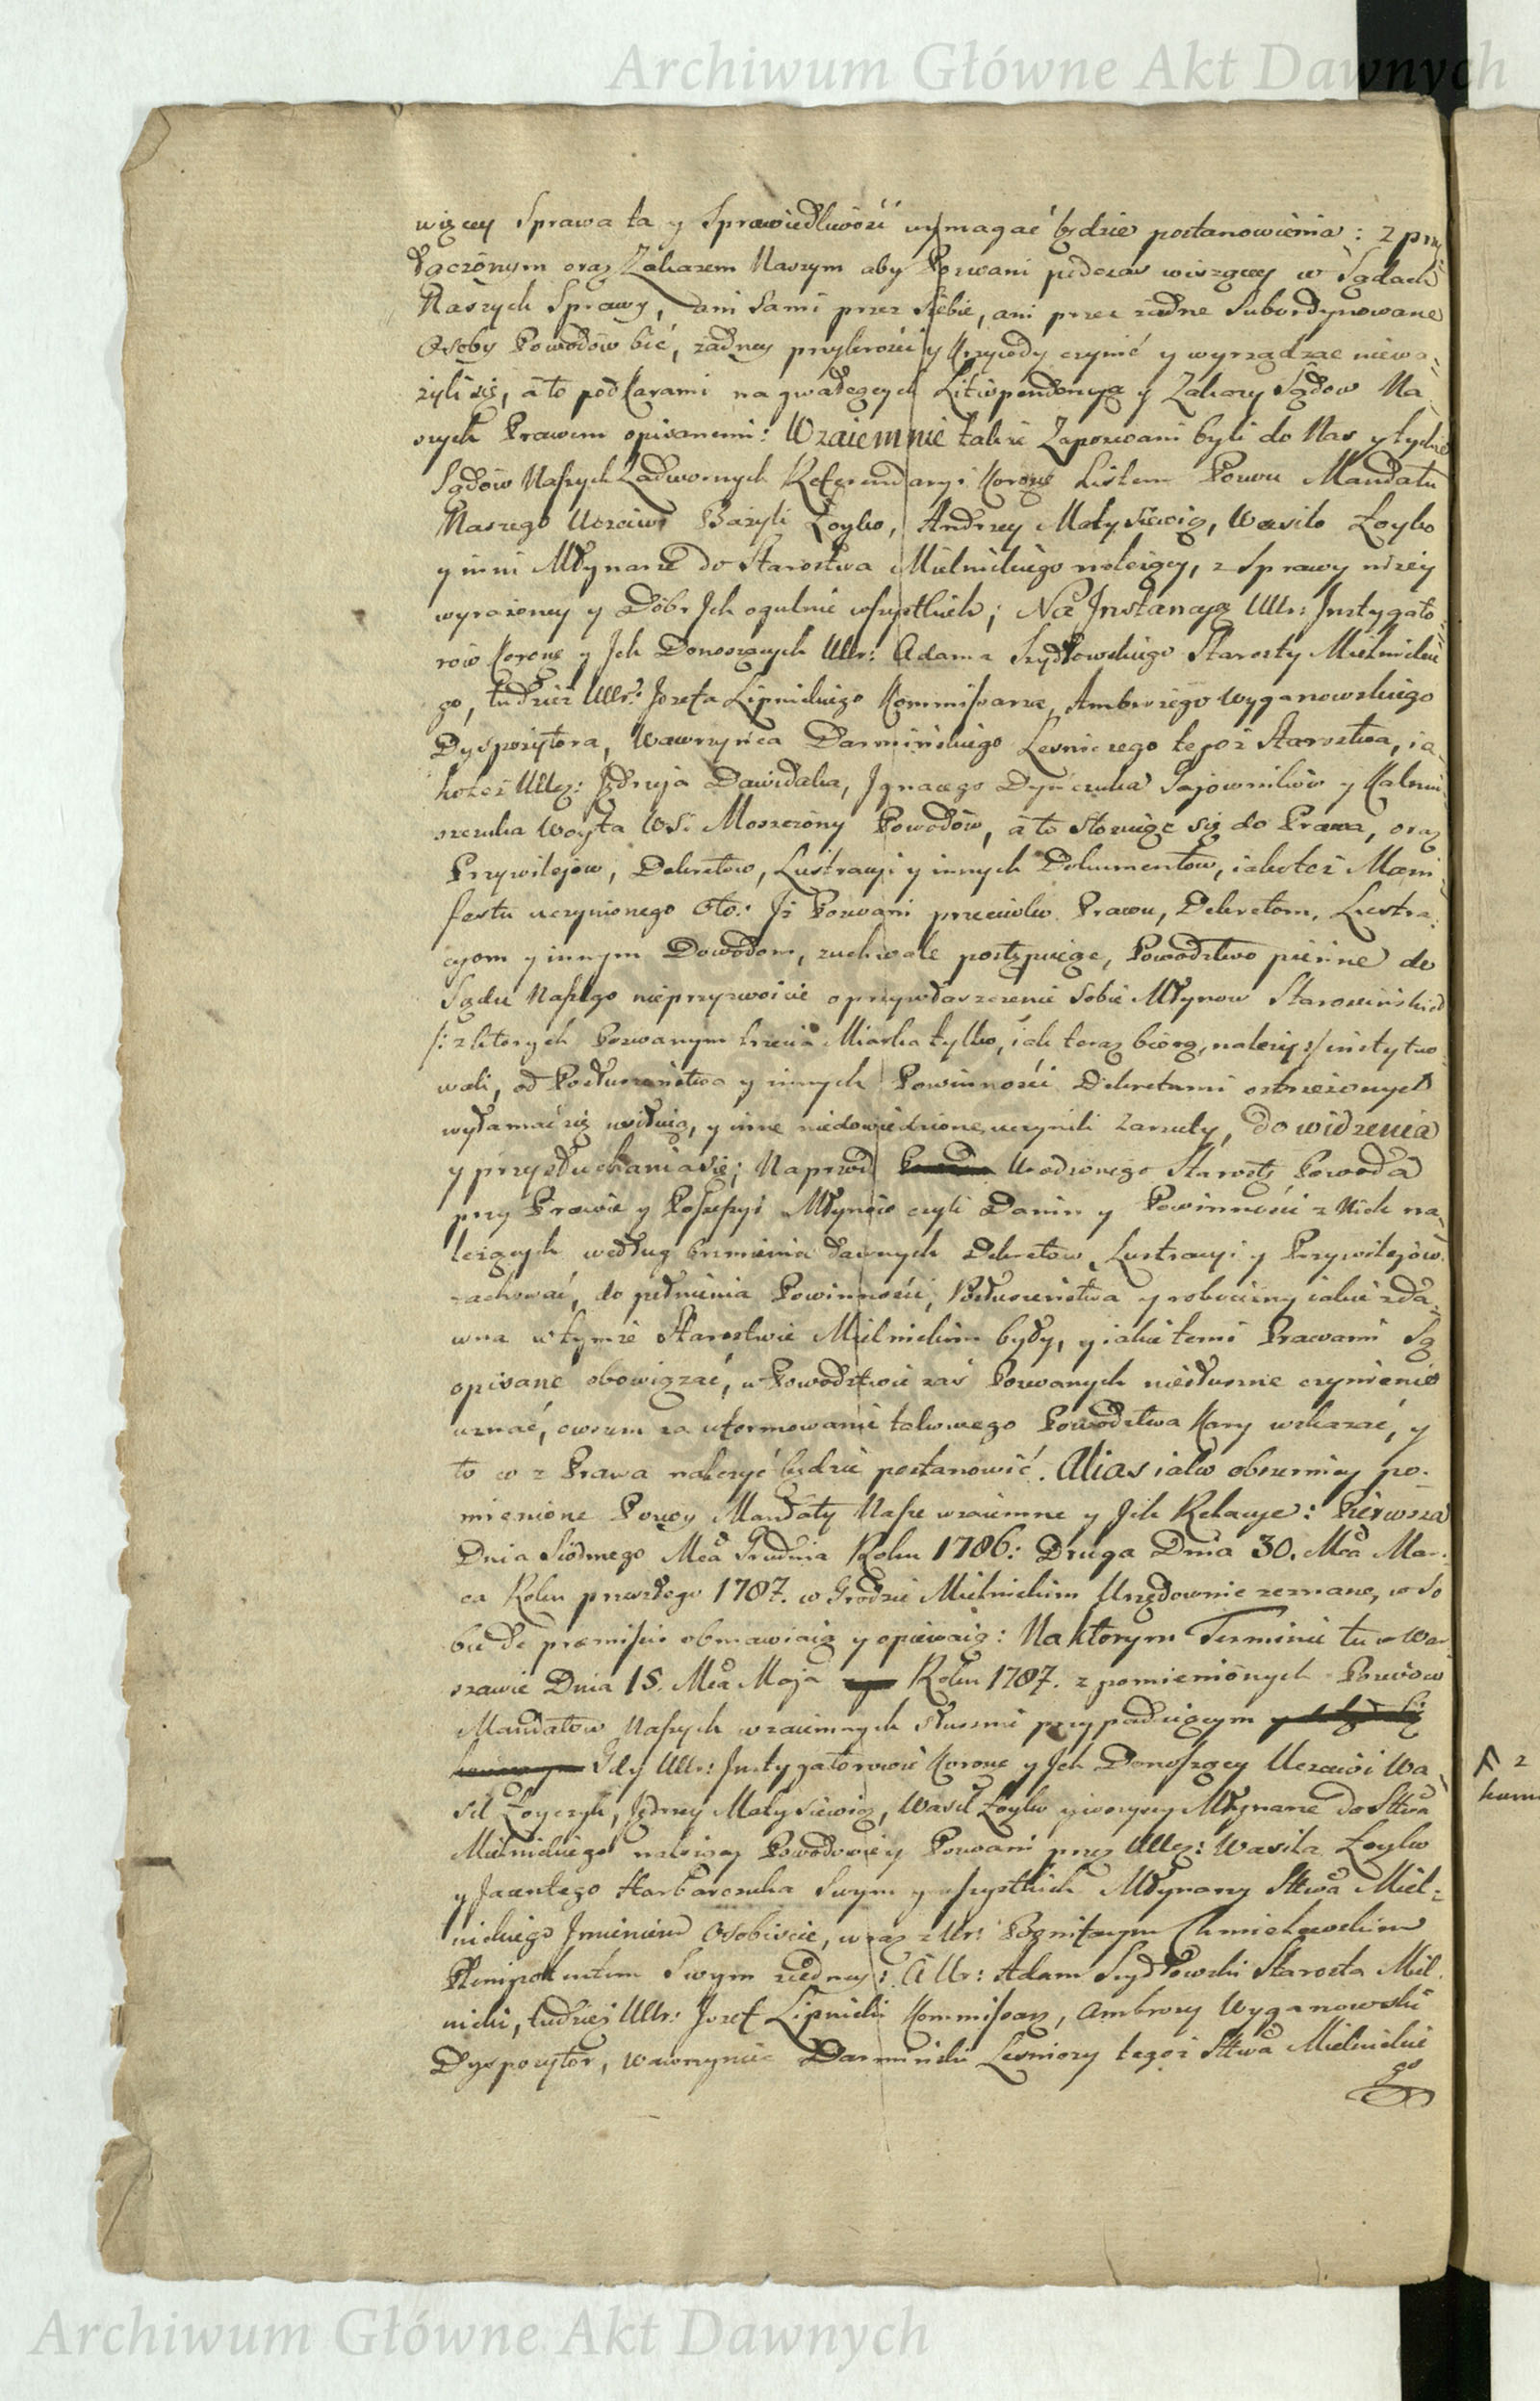 Archiwum Główne Akt Dawnych
więcey Sprawa ta y Sprawiedliwość wymagać będzie postanowienia: z przy
łączonym oraz Zakazem Naszym aby Pozwani podczas wiszącey w Sądach
Naszych Sprawy, ani sami przez siebie, ani przez żadne Subordynowane
Osoby Powodów bić, żadney przykrości y Krzywdy czynić y wyrządzac niewa-
żyli się, a to pod karami na gwałcących Litispendencyą y Zakazy Sądow Na
szych Prawem opisanemi: Wzaiemnie także Zapozwani byli do Nas y tychże
Sądów Naszych Zadwornych Referendaryi Koronę Listem Pozwu Mandatu
Naszego Uczciwi Bazyli Łoyko, Andrzey Małysiewicz, Wasilo Łoyko
y inni Młynarze do Starostwa Mielnickiego należący, z Sprawy niżey
wyrażoney y Dobr Ich ogulnie wszystkich; Na Instancyą Ullr: Instygato
rów Koronę y Ich Donoszących Ullr: Adama Szydłowskiego Starosty Mielnickie
go, tudzież Ullr: Jozefa Lipnickiego Kommissarza, Ambrożego Wyganowskiego
Dyspozytora, Wawrzyńca Darmińskiego Lesniczego tegoż Starostwa, ia
koteż Ullcz: Jędrzeja Dawidaka, Ignacego Dyńczuka Gajowników y
szczuka Woyta Wsi Moszczony Powodów, a to stosuiąc się do Prawa, oraz
Przywilejów, Dekretow, Lustracyi y innych Dokumentow, iakoteż Mani
festu uczynionego Oto: Iż Pozwani przeciwko Prawu, Dekretom, Lustra-
cyom y innym Dowodom, zuchwale postępuiąc, Powodztwo pienne do
Sądu Naszego nieprzyzwoicie o przywłaszczenie Sobie Młynow Starościńskich
/: z ktorych Pozwanym trzecia Miarka tylko, iak teraz biorą, należy :/ instytuo
wali, od Posłuszeństwa y innych Powinności Dekretami ostrzeżonych
wyłamać się usiłuią, y inne niedowiedzione uczynili zarzuty, do widzenia
y przysłuchania się; Naprzod Urodzonego Starostę Powoda
przy Prawie y Possessyi Młynów czyli Danin y Powinności z Nich na-
leżących według brzmienia dawnych Dekretow, Lustracyi y Przywilejów
zachować, do pełnienia Powinności, Posłuszeństwa y robocizny iakie zda-
wna w tymże Starostwie Mielnickim były, y iakie temi Prawami Są
opisane obowiązać, w Powodztwie zaś Pozwanych niesłusznie czynienie
uznać, owszem za uformowanie takowego Powodztwa Kary wskazać, y
to co z Prawa należyć będzie postanowić. Alias iako obszerniey po-
mienione Pozwy Mandaty Nasze wzaiemne y Ich Relacye: Pierwsza
Dnia Siodmego Mca Grudnia Roku 1786: Druga Dnia 30. Mca Mar-
ca Roku przeszłego 1787. w Grodzie Mielnickim Urzędownie zeznane, w So
bie de praemissis obmawiaią y opiewaią: Na ktorym Terminie tu w War
szawie Dnia 15. Mca Maja Roku 1787. z pomienionych Pozwow
Mandatow Naszych wzaiemnych słusznie przypadaiącym
Gdy Ullr: Instygatorowie Koronę y Ich Donoszący Uczciwi Wa
sil Łoyczyk, Jędrzey Małysiewicz, Wasil Łoyko y wszyscy Młynarze do Stwa
Mielnickiego należący Powodowie y Pozwani przez Ullcz: Wasila Łoyko
y Jacentego Harbaruczuka Swym y wszystkich Młynarzy Stwa Miel-
nickiego Imieniem Osobiscie, wraz z Ur: Chmielewskim
Plenipotentem Swym iedney: A Ur: Adam Szydłowski Starosta Miel
nicki, tudzież Ullr: Jozef Lipnicki Kommissarz, Ambrozy Wyganowski
Dyspozytor, Wawrzyniec Darmiński Lesniczy tegoż Stwa Mielnickie
go
z
Archiwum Główne Akt Dawnych